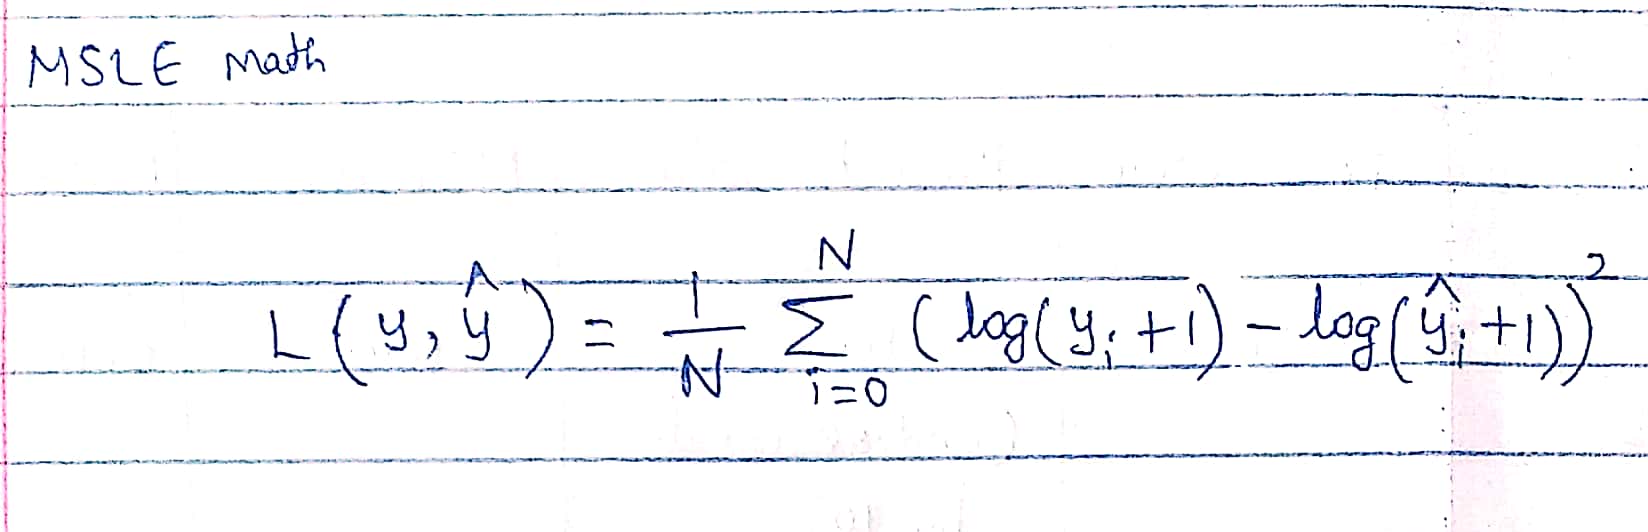 MSLE Math
L(y, ŷ) = 1/N N∑i=0 (log(yi+1) - log(ŷi+1))²